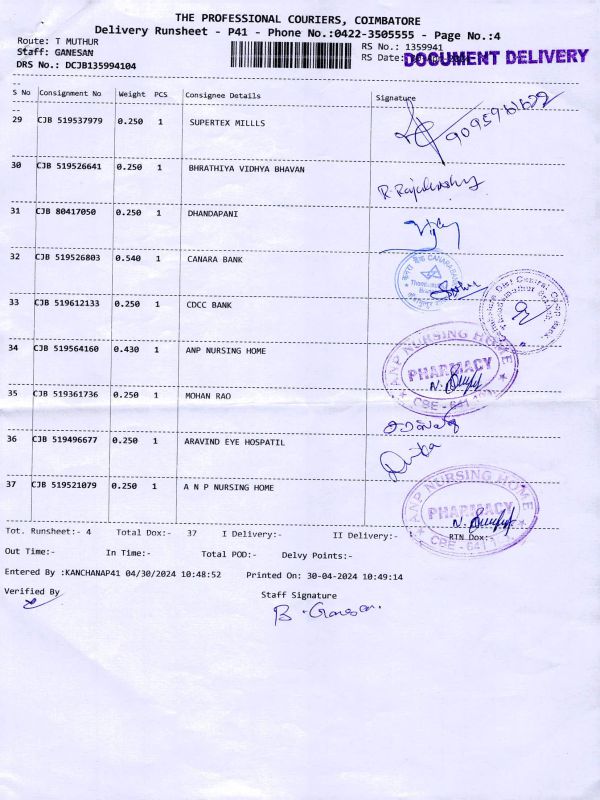 THE PROFESSIONAL COURIERS, COIMBATORE
Delivery Runsheet - P41 - Phone No.:0422-3505555 - Page No.:4
Route: T MUTHUR
RS No.: 1359941
Staff: GANESAN
RS Date:
DOCUMENT DELIVERY
DRS No.: DCJB135994104
S No Consignment No Weight PCS Consignee Details Signature
29 CJB 519537979 0.250 1 SUPERTEX MILLLS
30 CJB 519526641 0.250 1 BHRATHIYA VIDHYA BHAVAN
31 CJB 80417050 0.250 1 DHANDAPANI
32 CJB 519526803 0.540 1 CANARA BANK
33 CJB 519612133 0.250 1 CDCC BANK
34 CJB 519564160 0.430 1 ANP NURSING HOME
ANP NURSING HOME
PHARMACY
35 CJB 519361736 0.250 1 MOHAN RAO
36 CJB 519496677 0.250 1 ARAVIND EYE HOSPATIL
37 CJB 519521079 0.250 1 A N P NURSING HOME
ANP NURSING HOME
PHARMACY
Tot. Runsheet:- 4 Total Dox:- 37 I Delivery:- II Delivery:- RTN Dox:-
Out Time:- In Time:- Total POD:- Delvy Points:-
Entered By :KANCHANAP41 04/30/2024 10:48:52 Printed On: 30-04-2024 10:49:14
Verified By
Staff Signature
B. Ganesan.